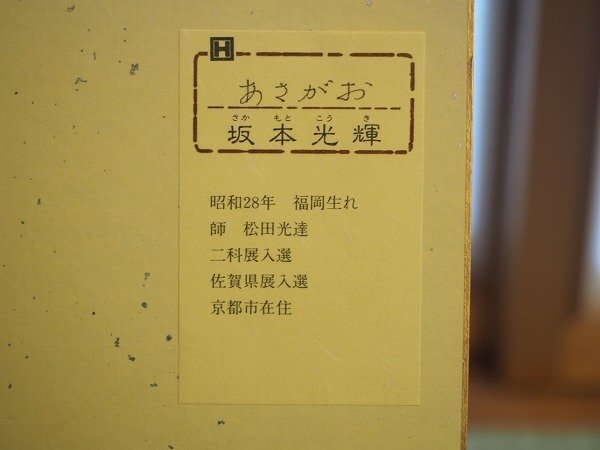 H
あさがお
さか もと こう き
坂本光輝
昭和28年 福岡生れ
師 松田光達
二科展入選
佐賀県展入選
京都市在住